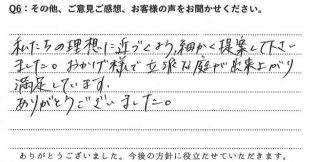 Q6：その他、ご意見ご感想、お客様の声をお聞かせください。
私たちの理想に近づくよう、細かく提案して下さい
ました。おかげ様で立派な庭が出来上がり
満足しています。
ありがとうございました。
ありがとうございました。今後の方針に役立たせていただきます。